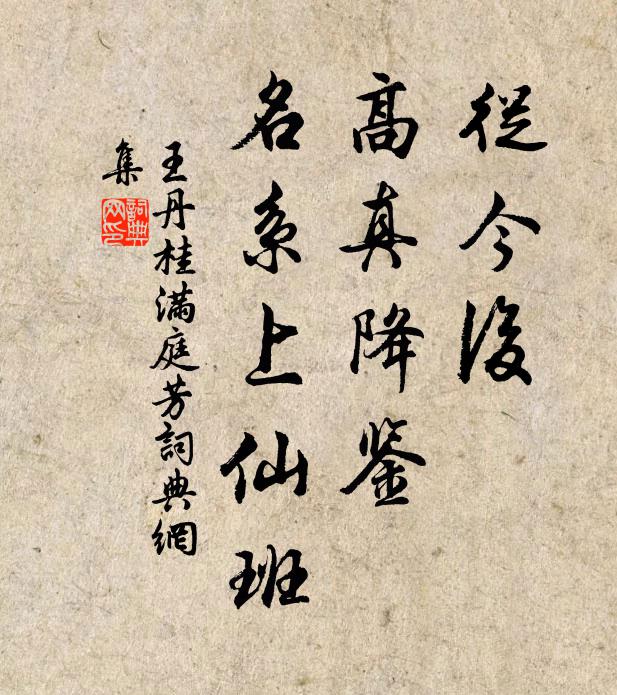 從今後
高真降鉴
名系上仙班
王丹桂滿庭芳詞典網
集
詞典
网印